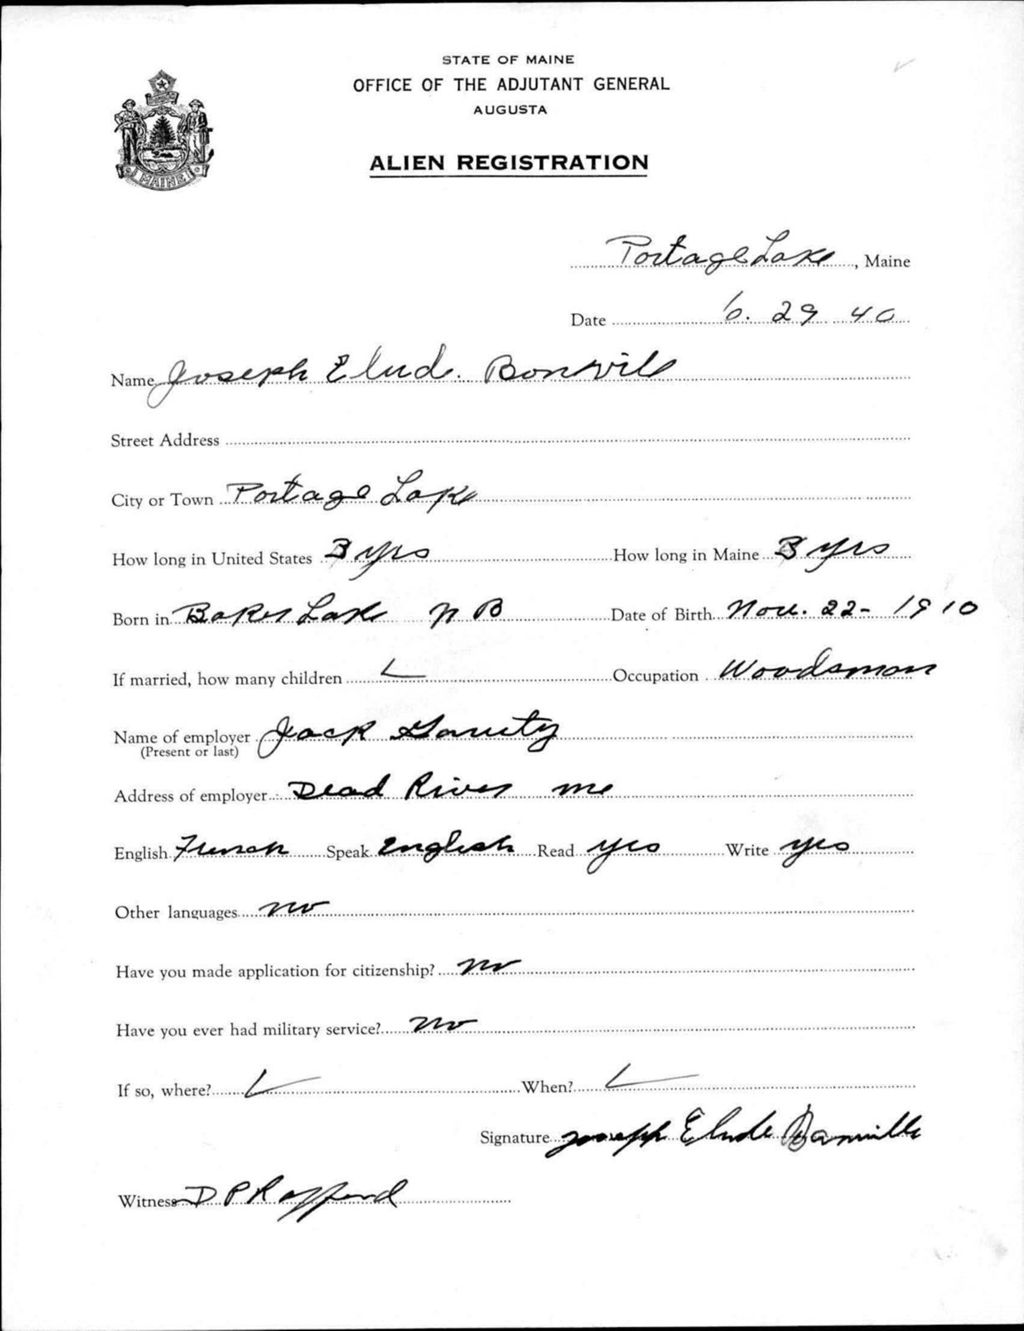 STATE OF MAINE
OFFICE OF THE ADJUTANT GENERAL
AUGUSTA
ALIEN REGISTRATION
MAINE
Portage Lake, Maine
Date 6. 29 40
Name Joseph Elude. Bonvill
Street Address
City or Town Portage Lake
How long in United States 3 yrs How long in Maine 3 yrs
Born in Baker Lake N B Date of Birth Nov. 22- 1910
If married, how many children Occupation Woodsman
Name of employer Jack
(Present or last)
Address of employer Dead River Me
English French Speak English Read yes Write yes
Other languages no
Have you made application for citizenship? no
Have you ever had military service? no
If so, where? When?
Signature Joseph Elude
Witness D P Rafford